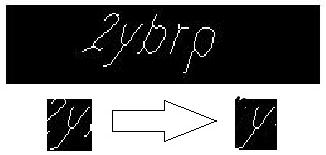 2ybrp
y
y